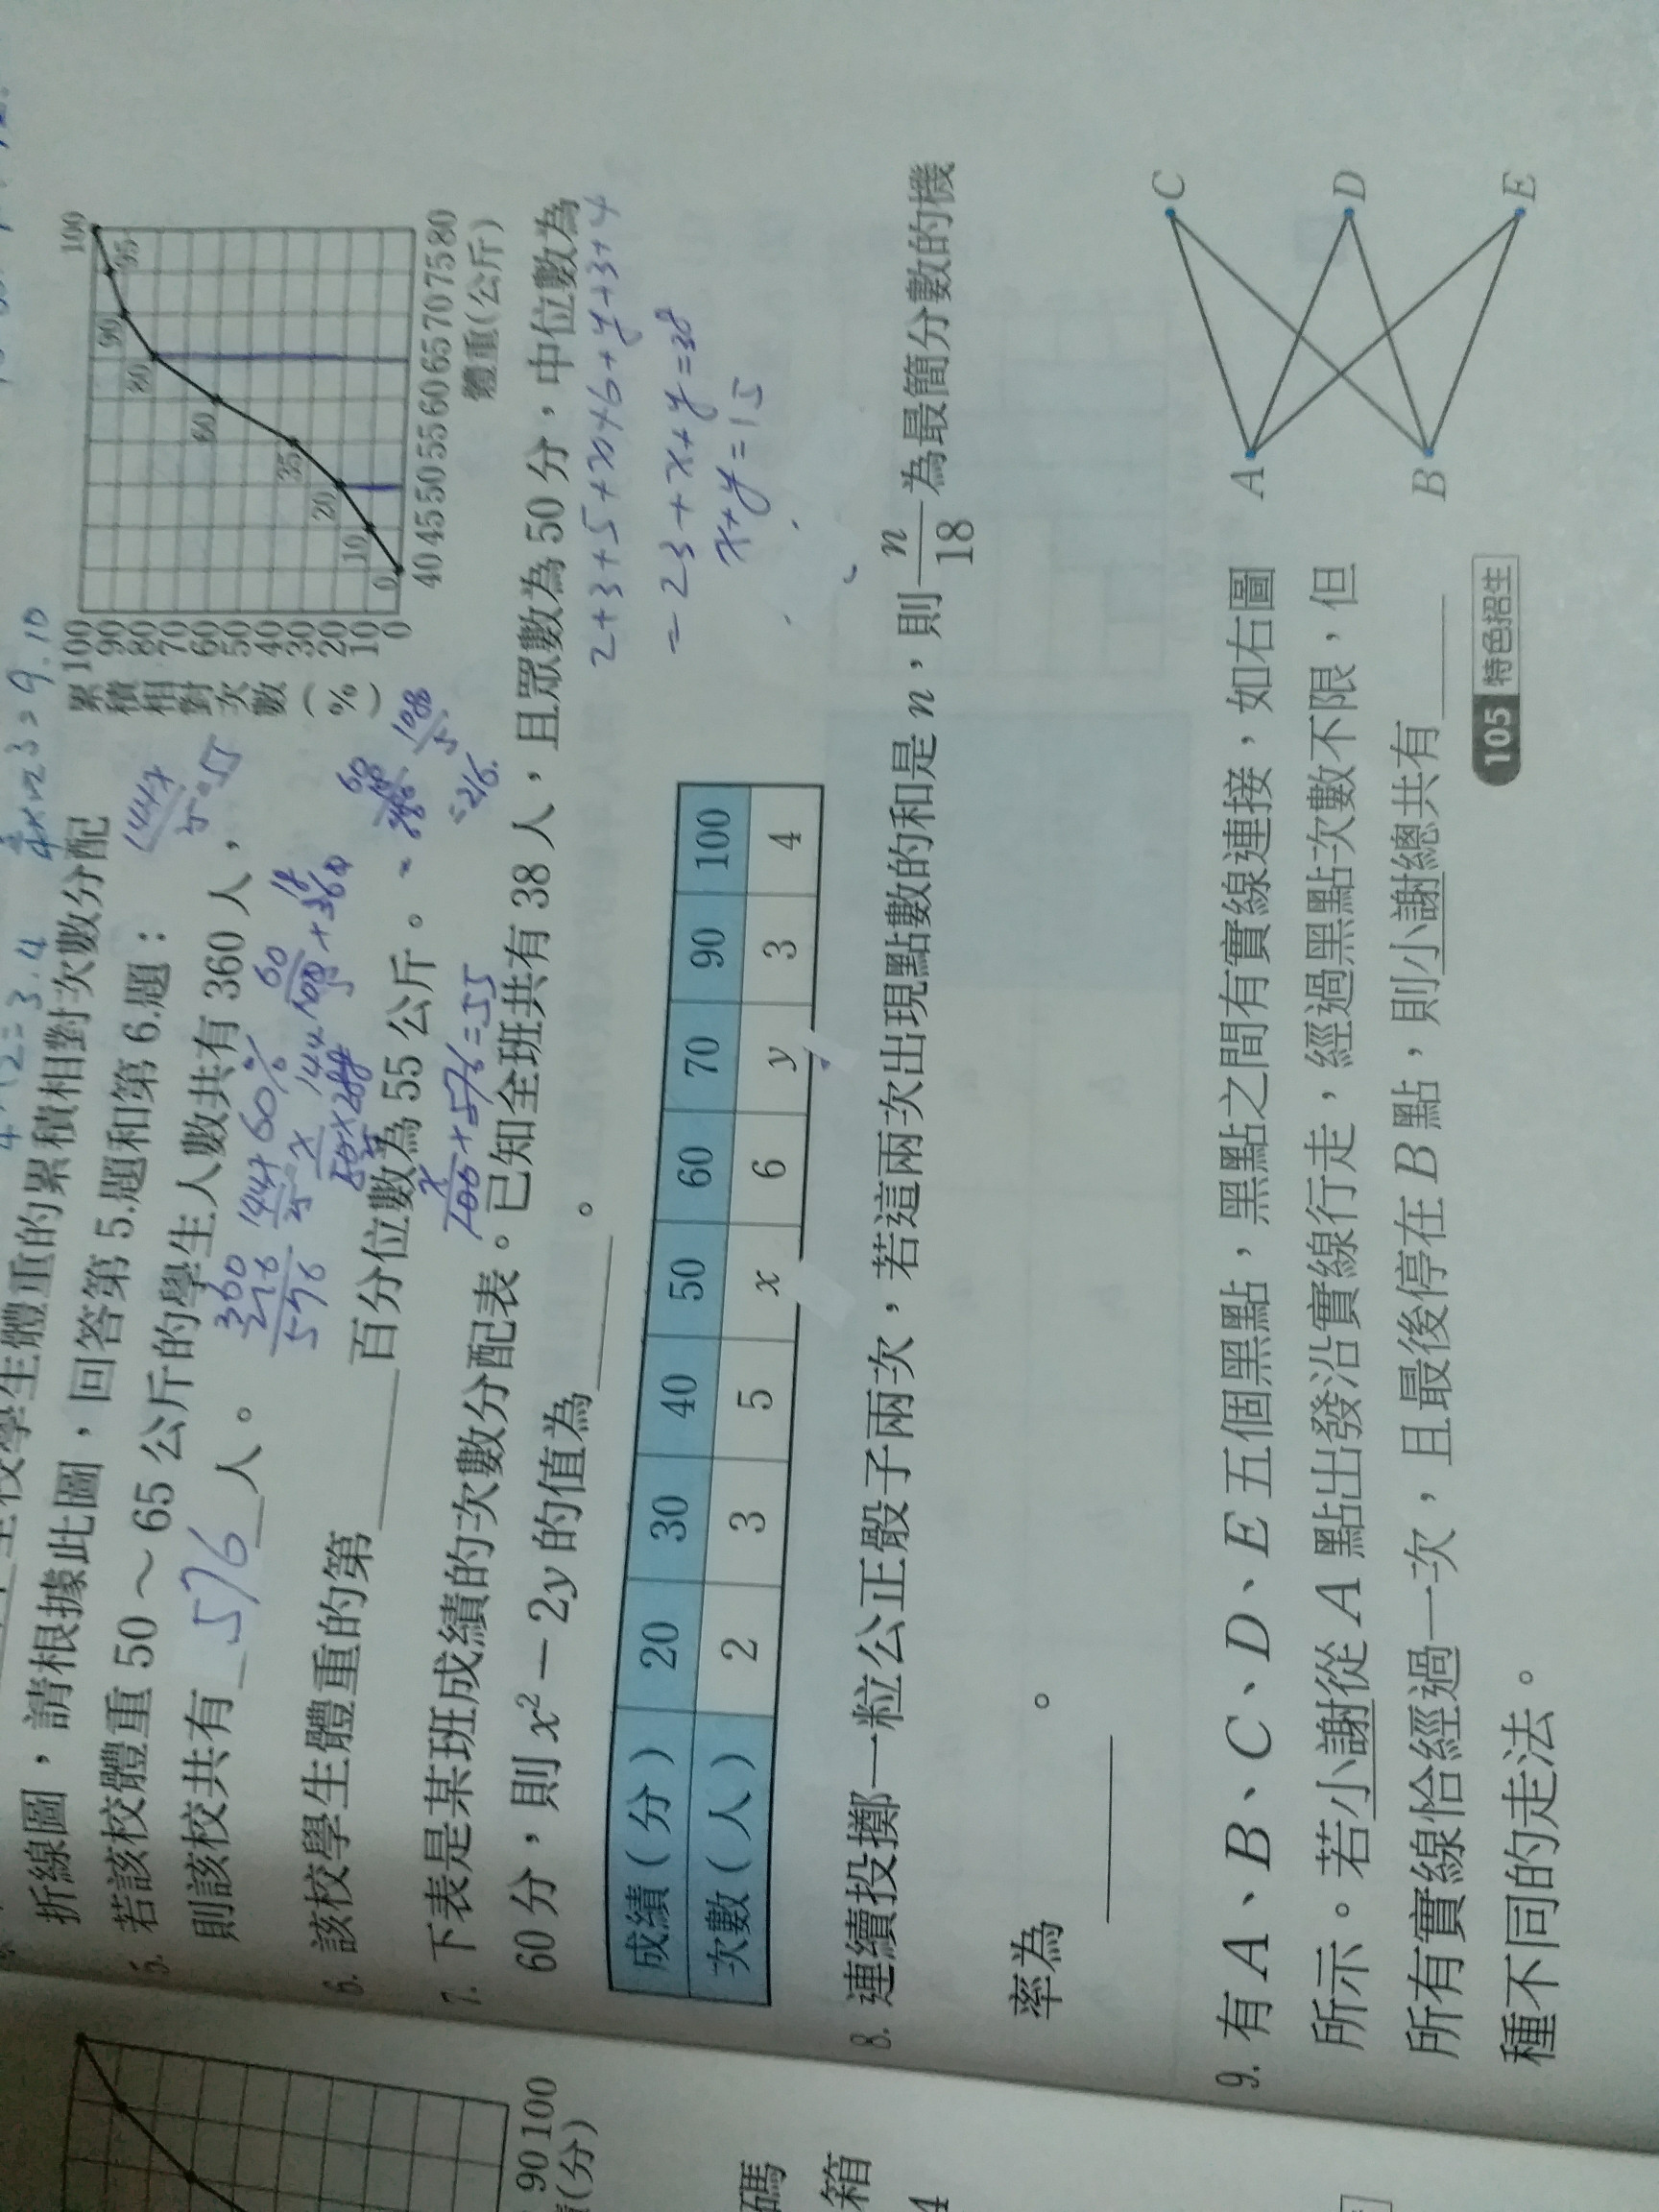 折線圖，請根據此圖，回答第5.題和第6.題：
5. 若該校體重50～65公斤的學生人數共有360人，
則該校共有 576 人。
6. 該校學生體重的第____百分位數為55公斤。
累積相對次數(%)
100
90
80
70
60
50
40
30
20
10
0
0
10
20
35
60
80
90
95
100
40 45 50 55 60 65 70 75 80
體重(公斤)
7. 下表是某班成績的次數分配表。已知全班共有38人，且眾數為50分，中位數為
60分，則x²－2y的值為____。
2+3+5+x+6+y+3+4
=23+x+y=38
x+y=15
成績(分) 20 30 40 50 60 70 90 100
次數(人) 2 3 5 x 6 y 3 4
8. 連續投擲一粒公正骰子兩次，若這兩次出現點數的和是n，則n/18為最簡分數的機
率為____。
9. 有A、B、C、D、E五個黑點，黑點之間有實線連接，如右圖
所示。若小謝從A點出發沿實線行走，經過黑點次數不限，但
所有實線恰經過一次，且最後停在B點，則小謝總共有____
種不同的走法。
105 特色招生
A
B
C
D
E
90 100
(分)
碼
箱
4